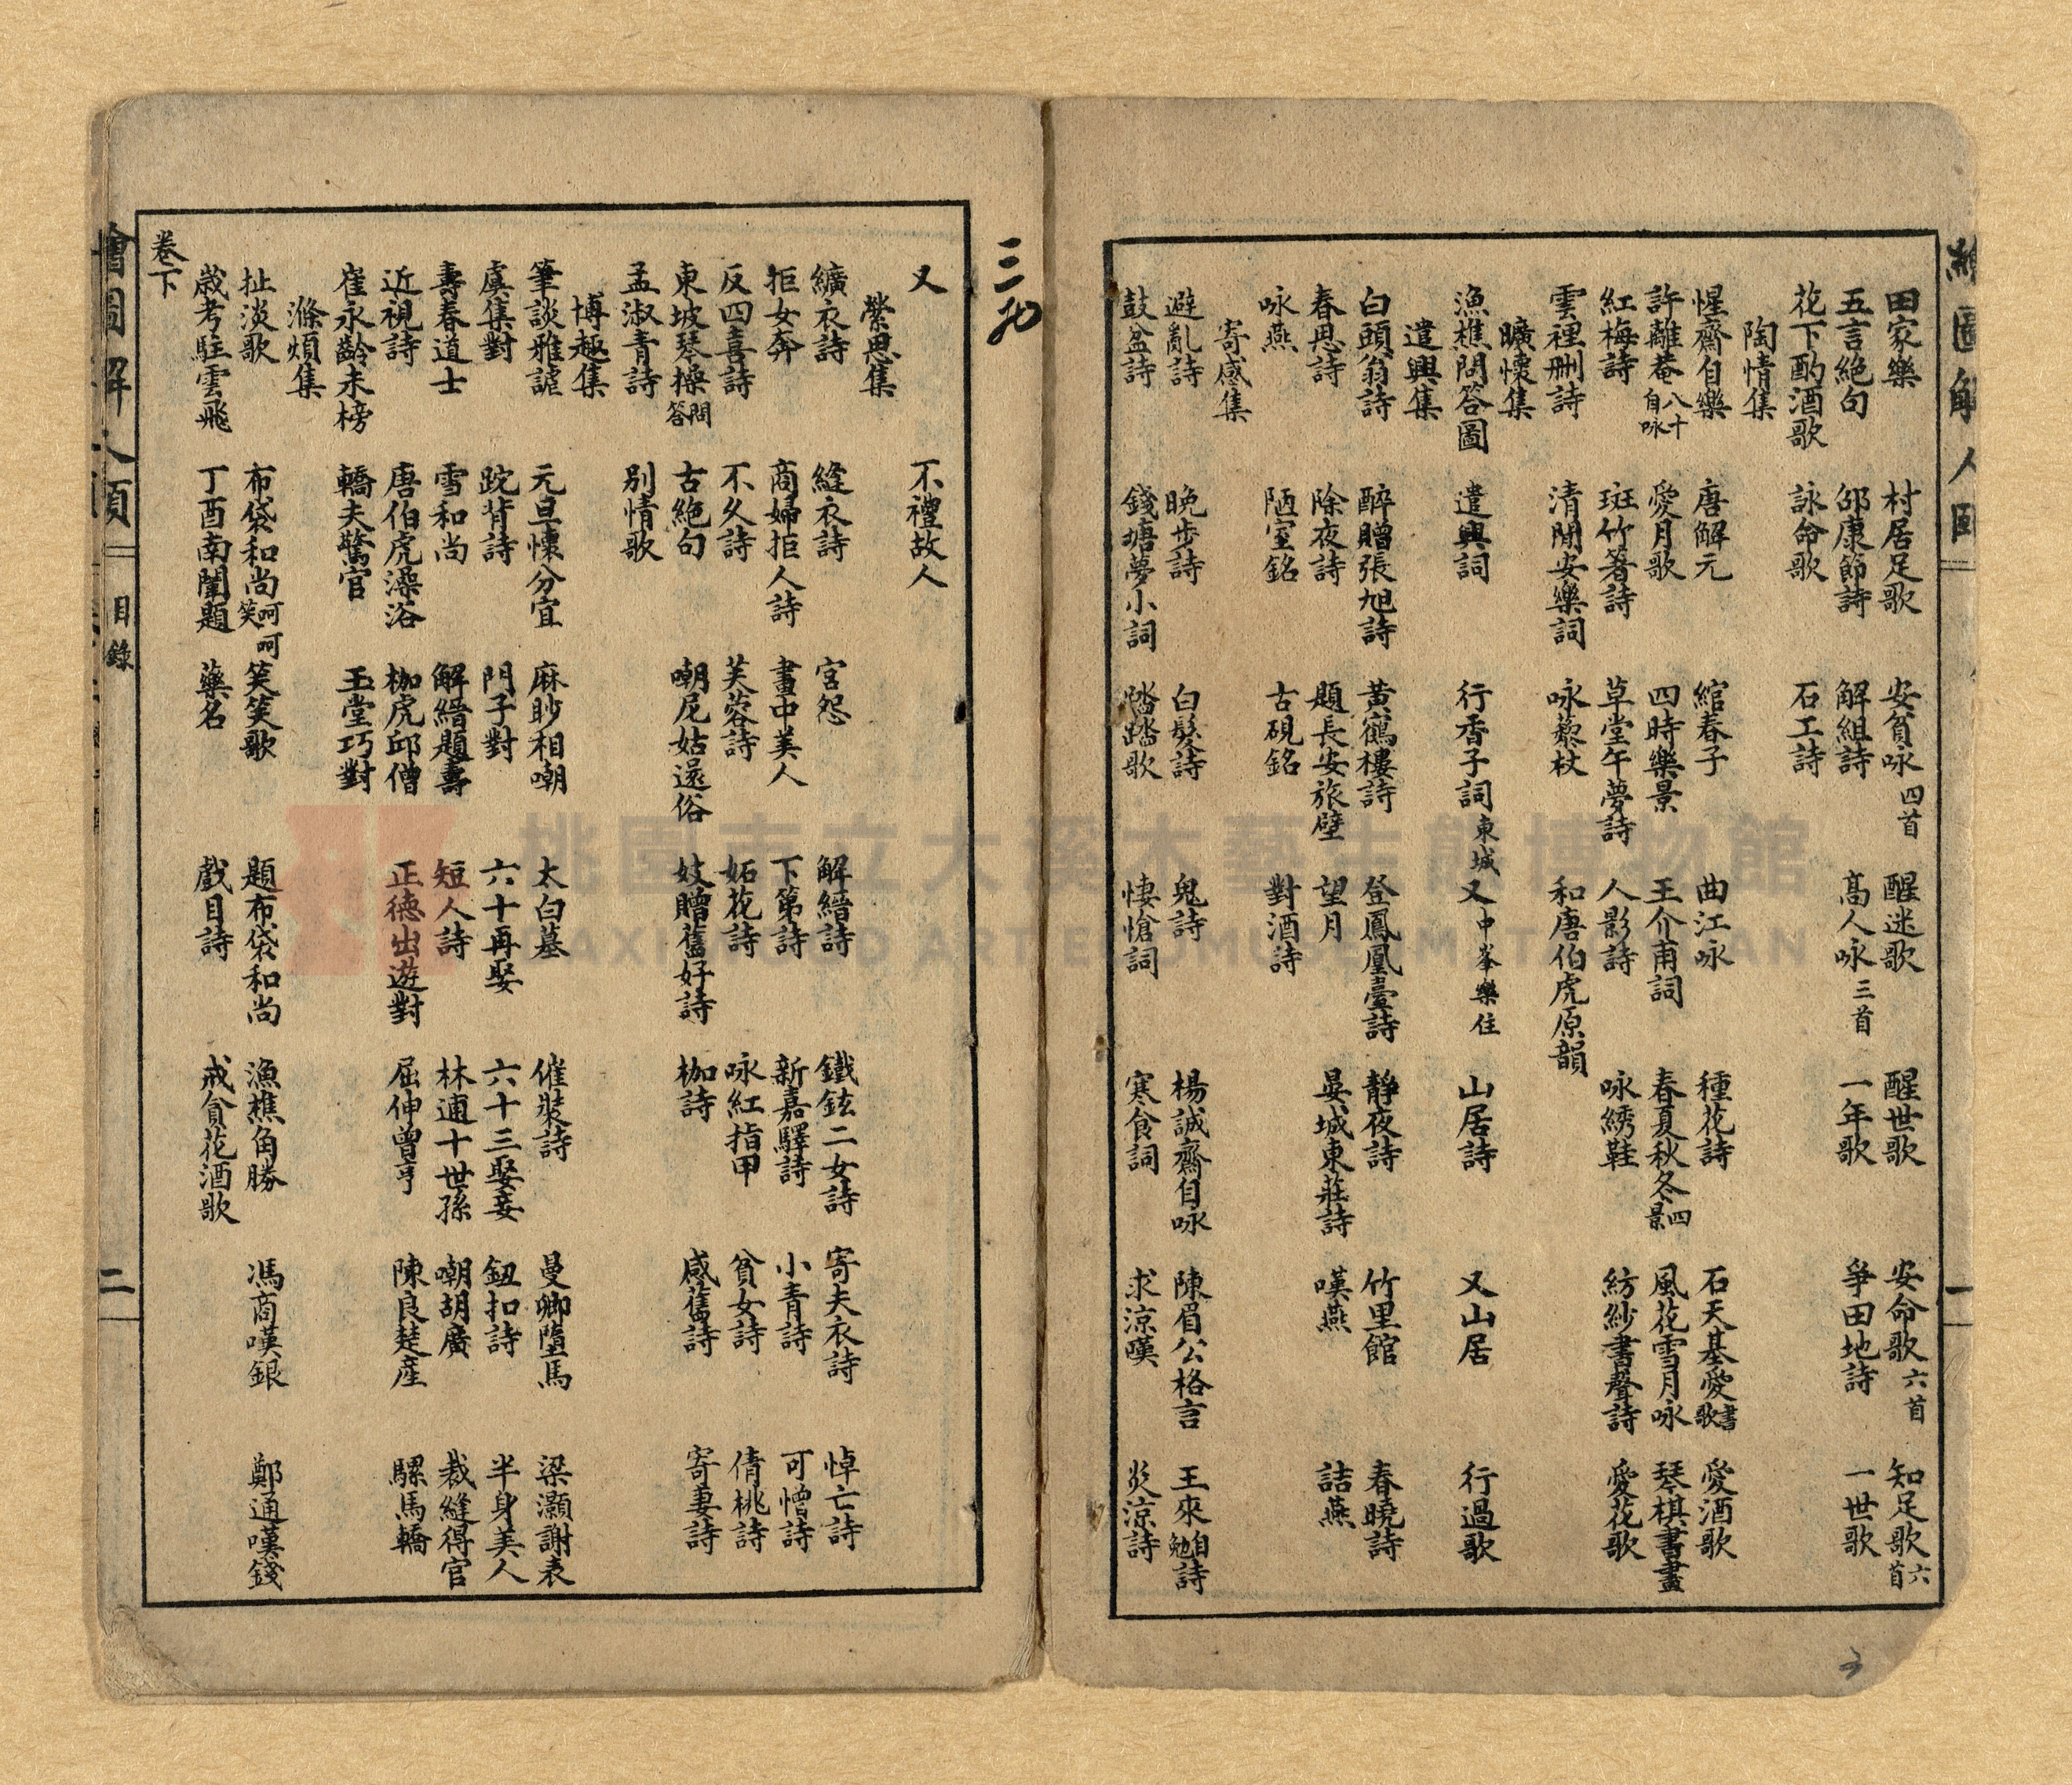 田家樂　村居足歌　安貧咏四首　醒迷歌　醒世歌　安命歌六首　知足歌六首
五言絕句　邵康節詩　解組詩　高人咏三首　一年歌　爭田地詩　一世歌
花下酌酒歌　詠命歌　石工詩
陶情集
惺齋自樂　唐解元　綰春子　曲江咏　種花詩　石天基愛書歌　愛酒歌
許離菴八十自咏　愛月歌　四時樂景　王介甫詞　春夏秋冬四景　風花雪月咏　琴棋書畫
紅梅詩　斑竹箸詩　草堂午夢詩　人影詩　咏綉鞋　紡紗書聲詩　愛花歌
雲裡刪詩　清閒安樂詞　咏藜杖　和唐伯虎原韻
曠懷集
漁樵問答圖　遣興詞　行香子詞東城　又中峯樂住　山居詩　又山居　行過歌
遣興集
白頭翁詩　醉贈張旭詩　黃鶴樓詩　登鳳凰臺詩　靜夜詩　竹里館　春曉詩
春思詩　除夜詩　題長安旅壁　望月　晏城東莊詩　嘆燕　詰燕
咏燕　陋室銘　古硯銘　對酒詩
寄感集
避亂詩　晚步詩　白髮詩　鬼詩　楊誠齋自咏　陳眉公格言　王來自勉詩
鼓盆詩　錢塘夢小詞　踏踏歌　悽愴詞　寒食詞　求涼嘆　炎涼詩
繪圖解人
一
三九
又　不禮故人
縈思集
纊衣詩　縫衣詩　宮怨　解縉詩　鐵鉉二女詩　寄夫衣詩　悼亡詩
拒女奔　商婦拒人詩　畫中美人　下第詩　新嘉驛詩　小青詩　可憎詩
反四喜詩　不久詩　芙蓉詩　妬花詩　咏紅指甲　貧女詩　倩桃詩
東坡琴操問答　古絕句　嘲尼姑還俗　妓贈舊好詩　枷詩　感舊詩　寄妻詩
孟淑青詩　別情歌
博趣集
筆談雅謔　元旦懷分宜　麻眇相嘲　太白墓　催裝詩　曼卿墮馬　梁灝謝表
虞集對　跎背詩　門子對　六十再娶　六十三娶妾　鈕扣詩　半身美人
壽春道士　雪和尚　解縉題壽　短人詩　林逋十世孫　嘲胡廣　裁縫得官
近視詩　唐伯虎澡浴　枷虎邱僧　正德出遊對　屈伸曾亨　陳良楚產　騾馬轎
崔永齡未榜　轎夫驚官　玉堂巧對
滌煩集
扯淡歌　布袋和尚呵呵笑　笑笑歌　題布袋和尚　漁樵角勝　馮商嘆銀　鄭通嘆錢
歲考駐雲飛　丁酉南闈題　藥名　戲目詩　戒貪花酒歌
卷下
繪圖解人頤
目錄
二
桃園市立大溪木藝生態博物館
DAXI WOOD ART ECOMUSEUM, TAOYUAN